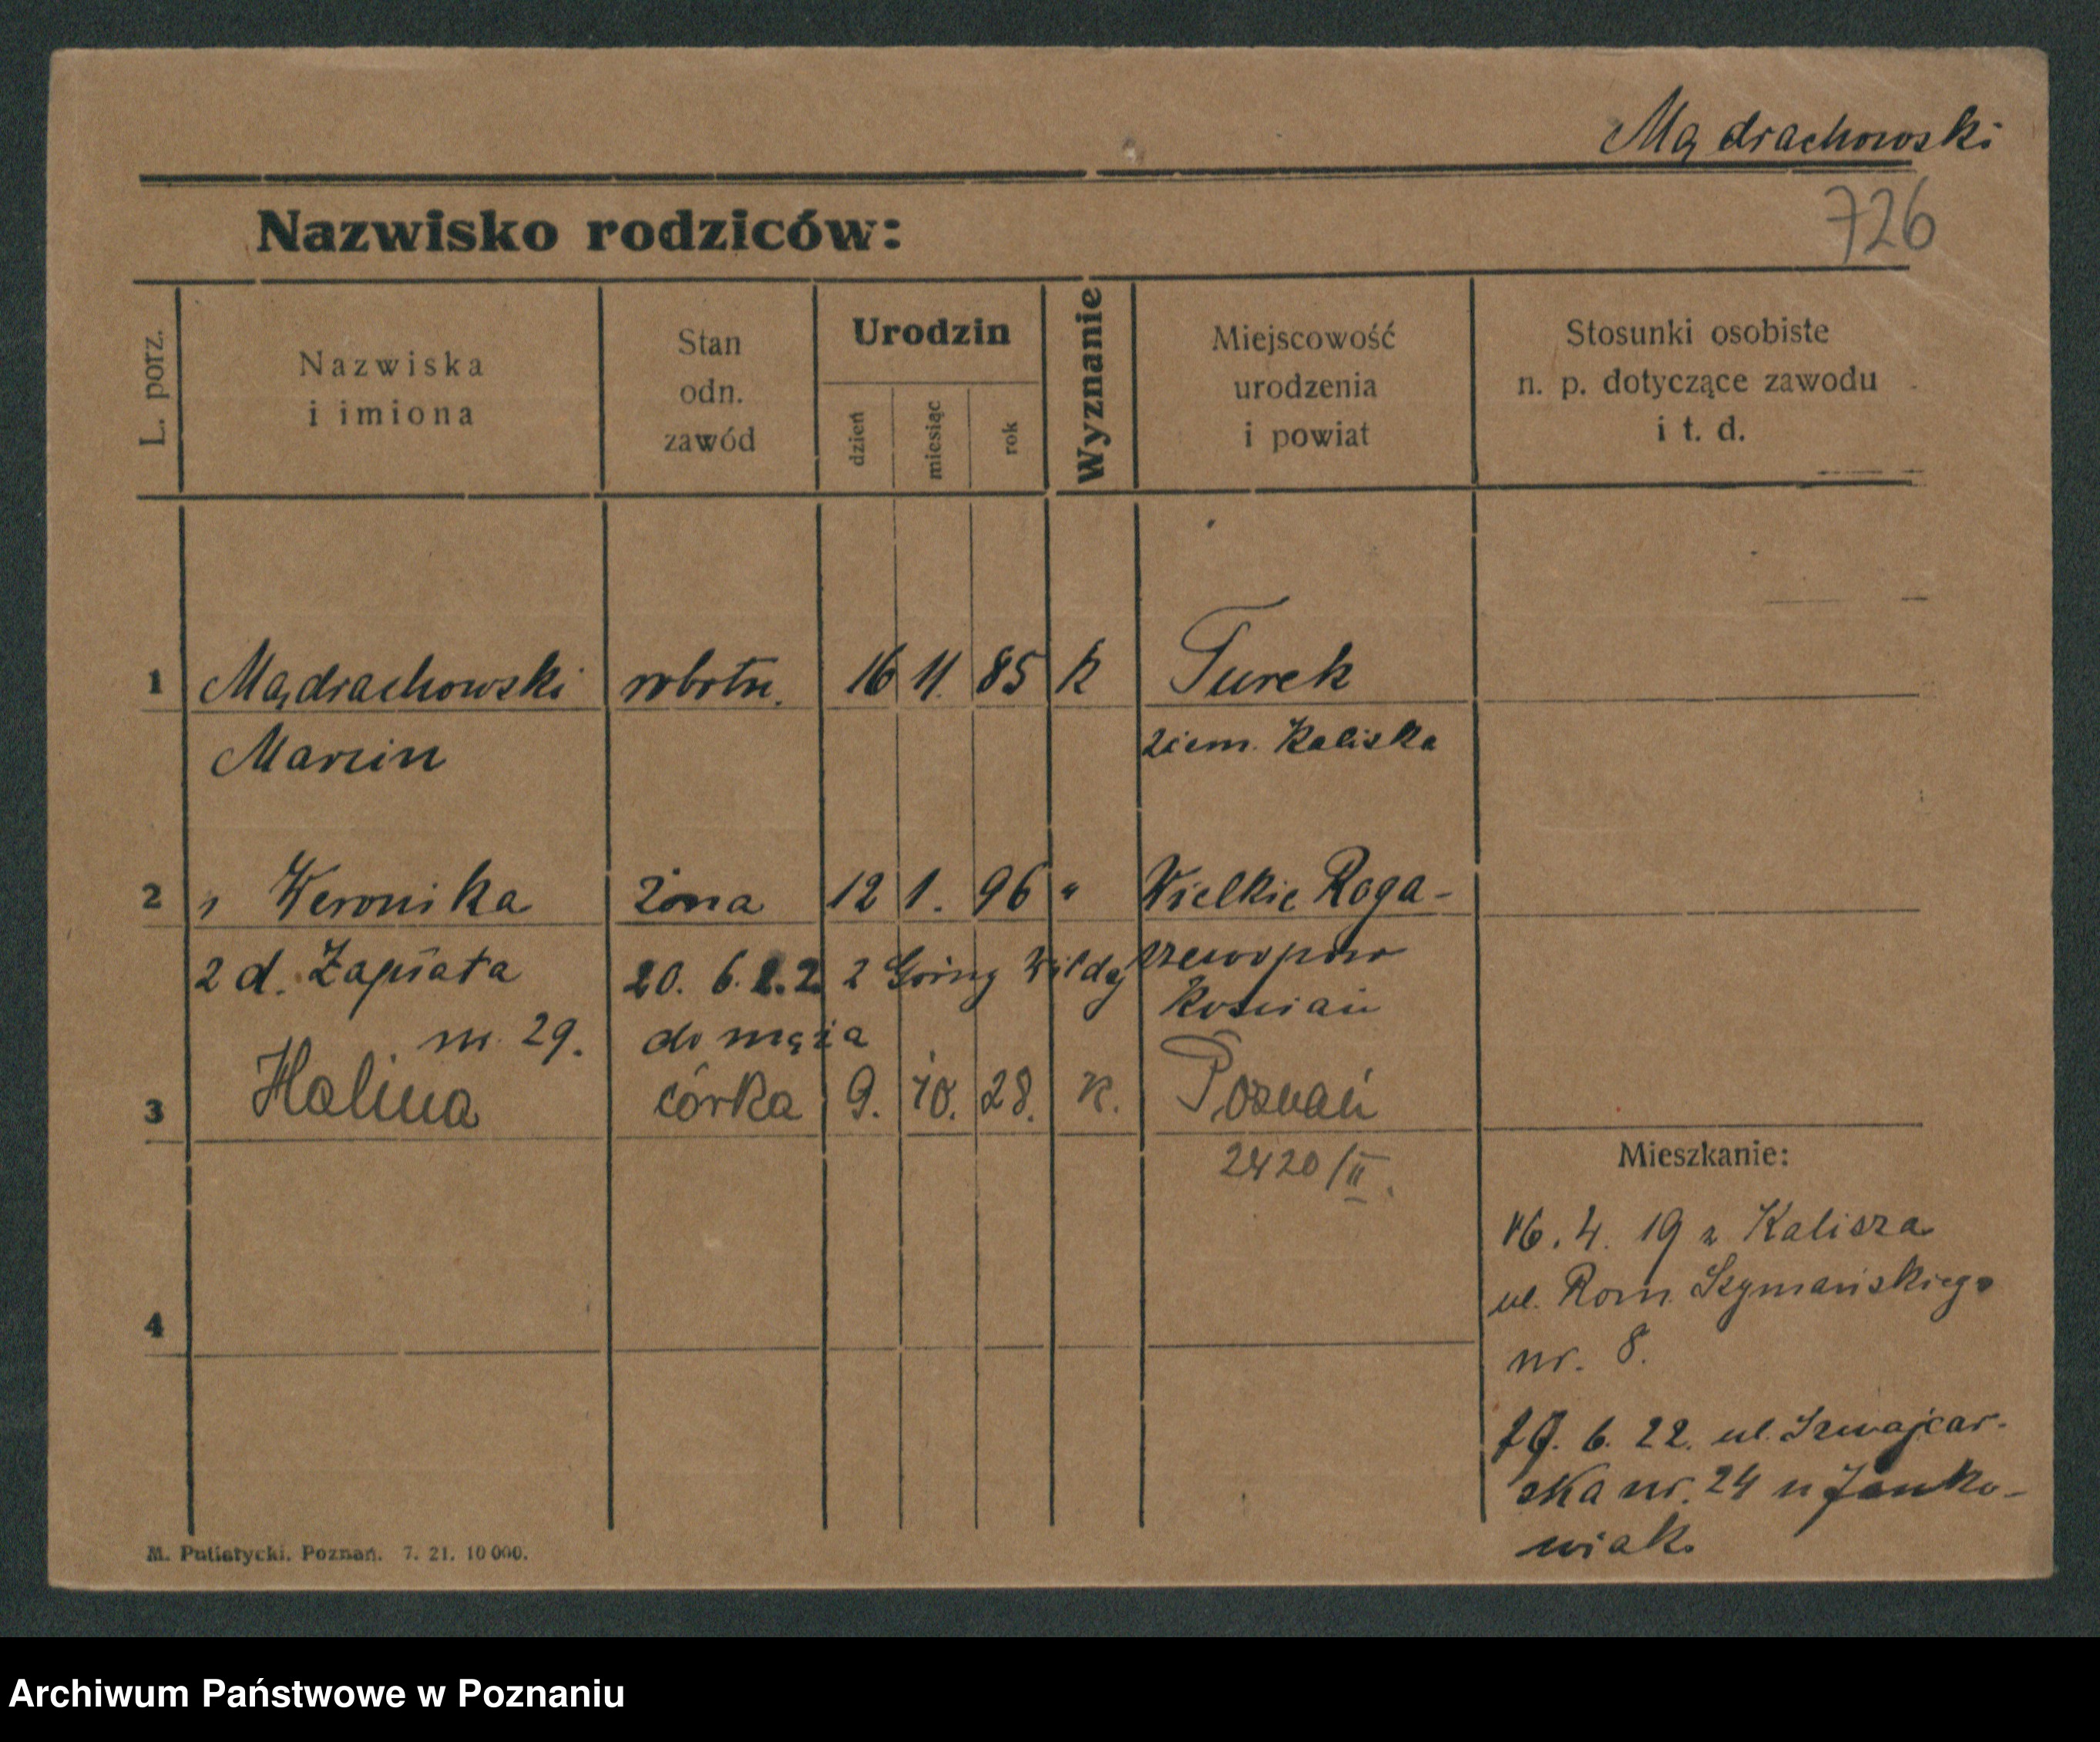 Mądrachowski
Nazwisko rodziców:
726
L. porz.
Nazwiska
i imiona
Stan
odn.
zawód
Urodzin
dzień
miesiąc
rok
Wyznanie
Miejscowość
urodzenia
i powiat
Stosunki osobiste
n. p. dotyczące zawodu
i t. d.
1 Mądrachowski robotn. 16 11. 85 k Turek
Marcin ziem. Kaliska
2 " Weronika żona 12 1. 96 " Wielkie Roga-
2 d. Zapłata 20. 6. 22 z Górny Wildy czewo pow
nr. 29. do męża Kościan
3 Halina córka 9. 10. 28. k. Poznań
2420/II.
Mieszkanie:
16. 4. 19 z Kalisza
ul. Rom. Szymańskiego
nr. 8.
4
20. 6. 22. ul. Szwajcar-
ska nr. 24 u Janko-
wiak.
M. Putiatycki. Poznań. 7. 21. 10 000.
Archiwum Państwowe w Poznaniu